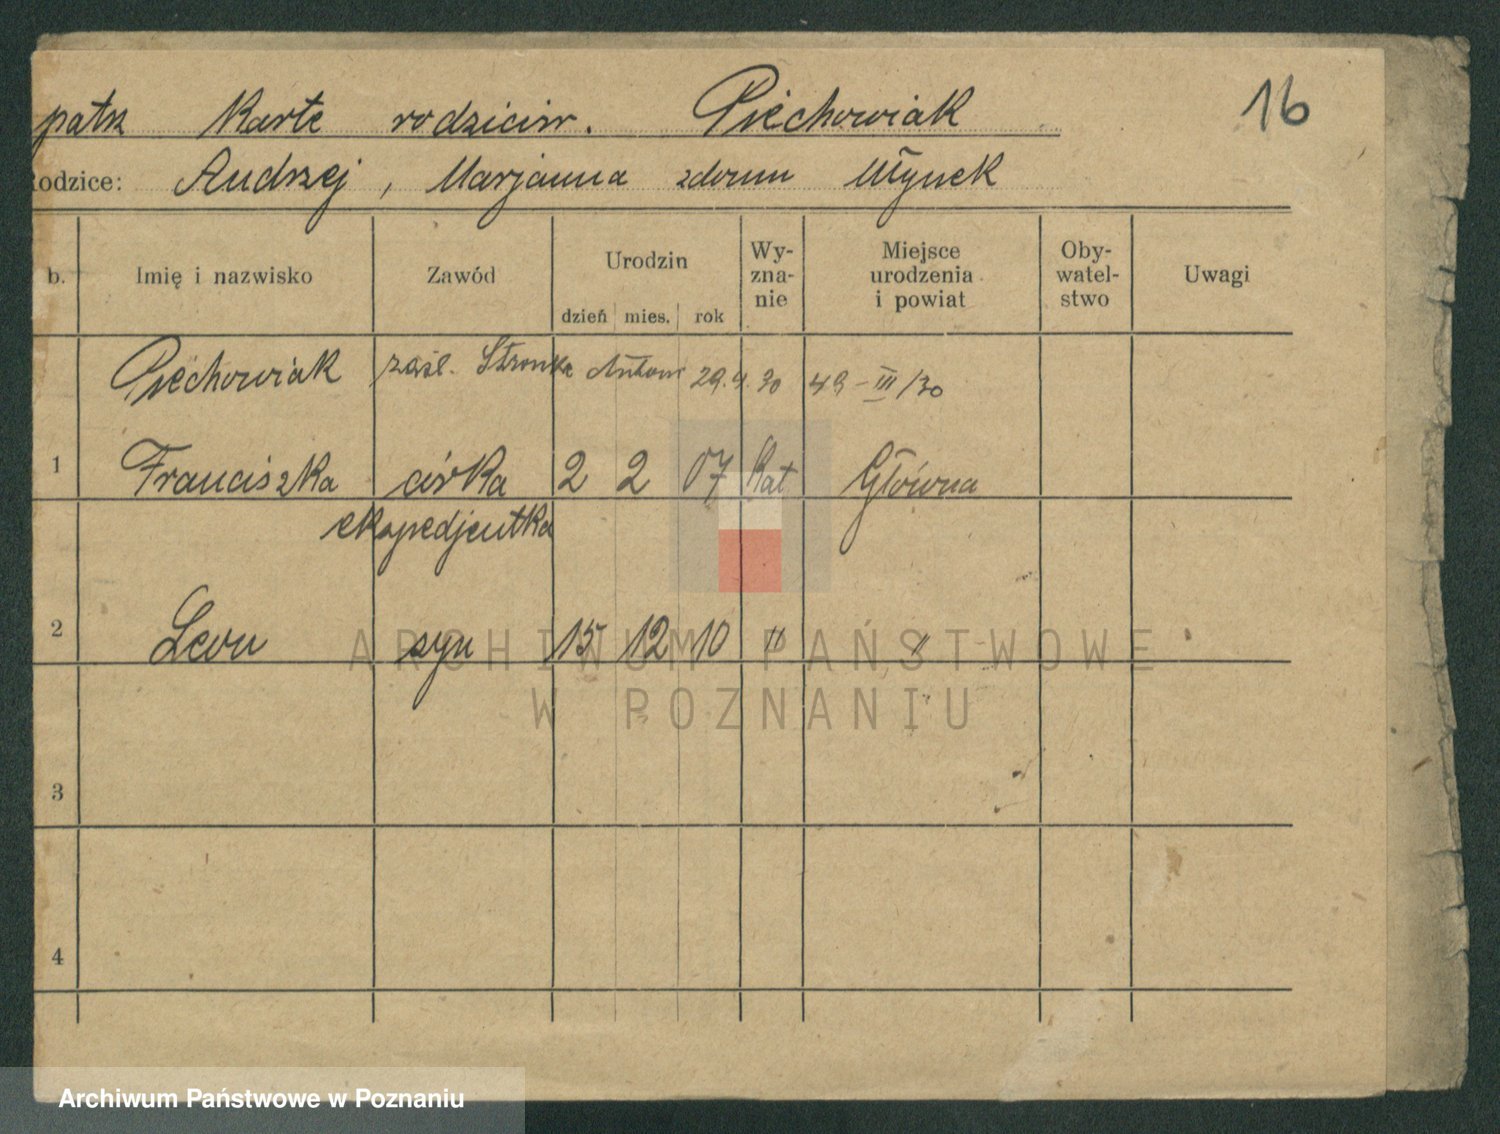 patrz Kartę rodziców. Piechowiak
16
Rodzice: Andrzej, Marjanna zdomu Młynek
b. Imię i nazwisko Zawód Urodzin Wy- Miejsce Oby- Uwagi
zna- urodzenia watel-
nie i powiat stwo
dzień mies. rok
Piechowiak zaśl. Stronka Antoni 29.4.30 49-III/30
1 Franciszka córka 2 2 07 Kat Główna
ekspedjentka
2 Leon syn 15 12 10 " "
3
4
ARCHIWUM PAŃSTWOWE
W POZNANIU
Archiwum Państwowe w Poznaniu